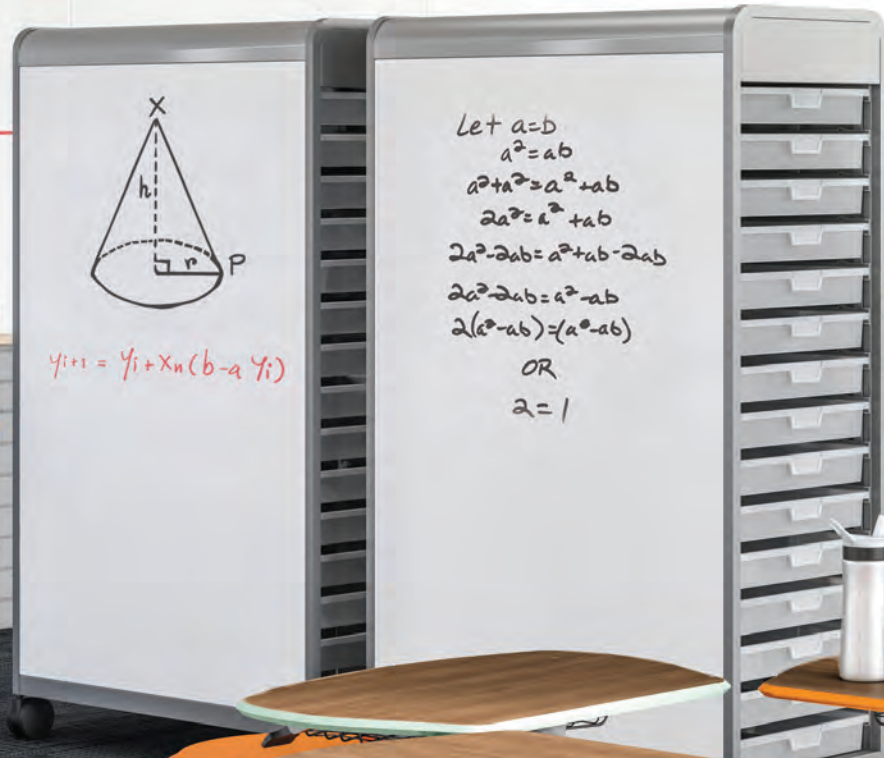 X
h
r P
yi+1 = yi + xn(b-a yi)
Let a=b
a²=ab
a²+a²=a²+ab
2a²=a²+ab
2a²-2ab=a²+ab-2ab
2a²-2ab=a²-ab
2(a²-ab)=(a²-ab)
OR
2=1